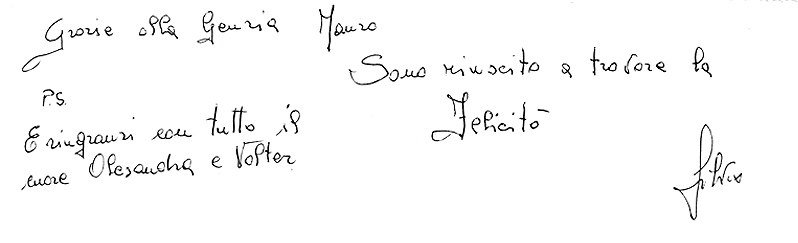 Grazie alla Genzia Mauro
Sono riuscito a trovare la
Felicità
P.S.
E ringrazi con tutto il
cuore Olesandra e Volter
Silvio